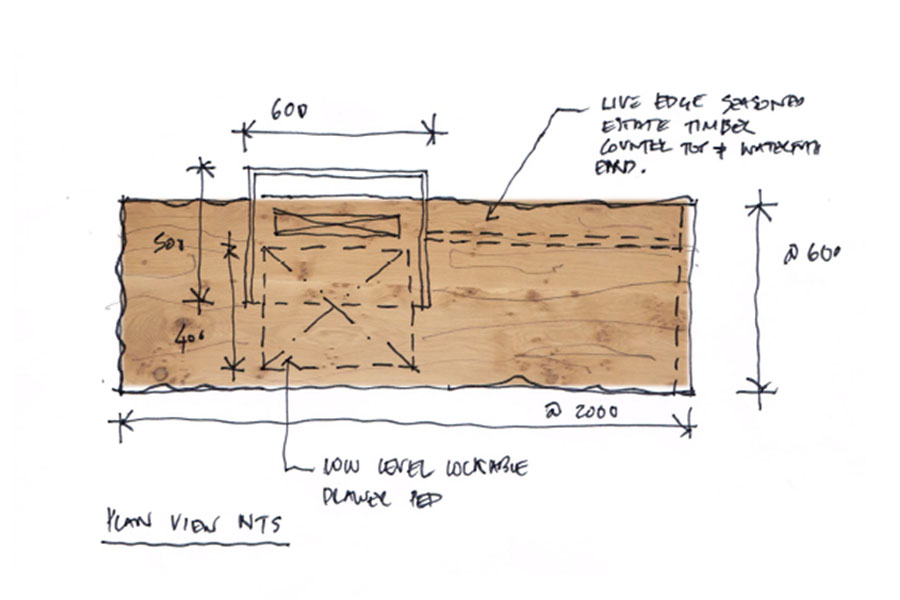 600
LIVE EDGE SEASONED
ESTATE TIMBER
COUNTER TOP + WATERFALL
END.
500
@ 600
400
@ 2000
LOW LEVEL LOCKABLE
DRAWER PED
PLAN VIEW NTS